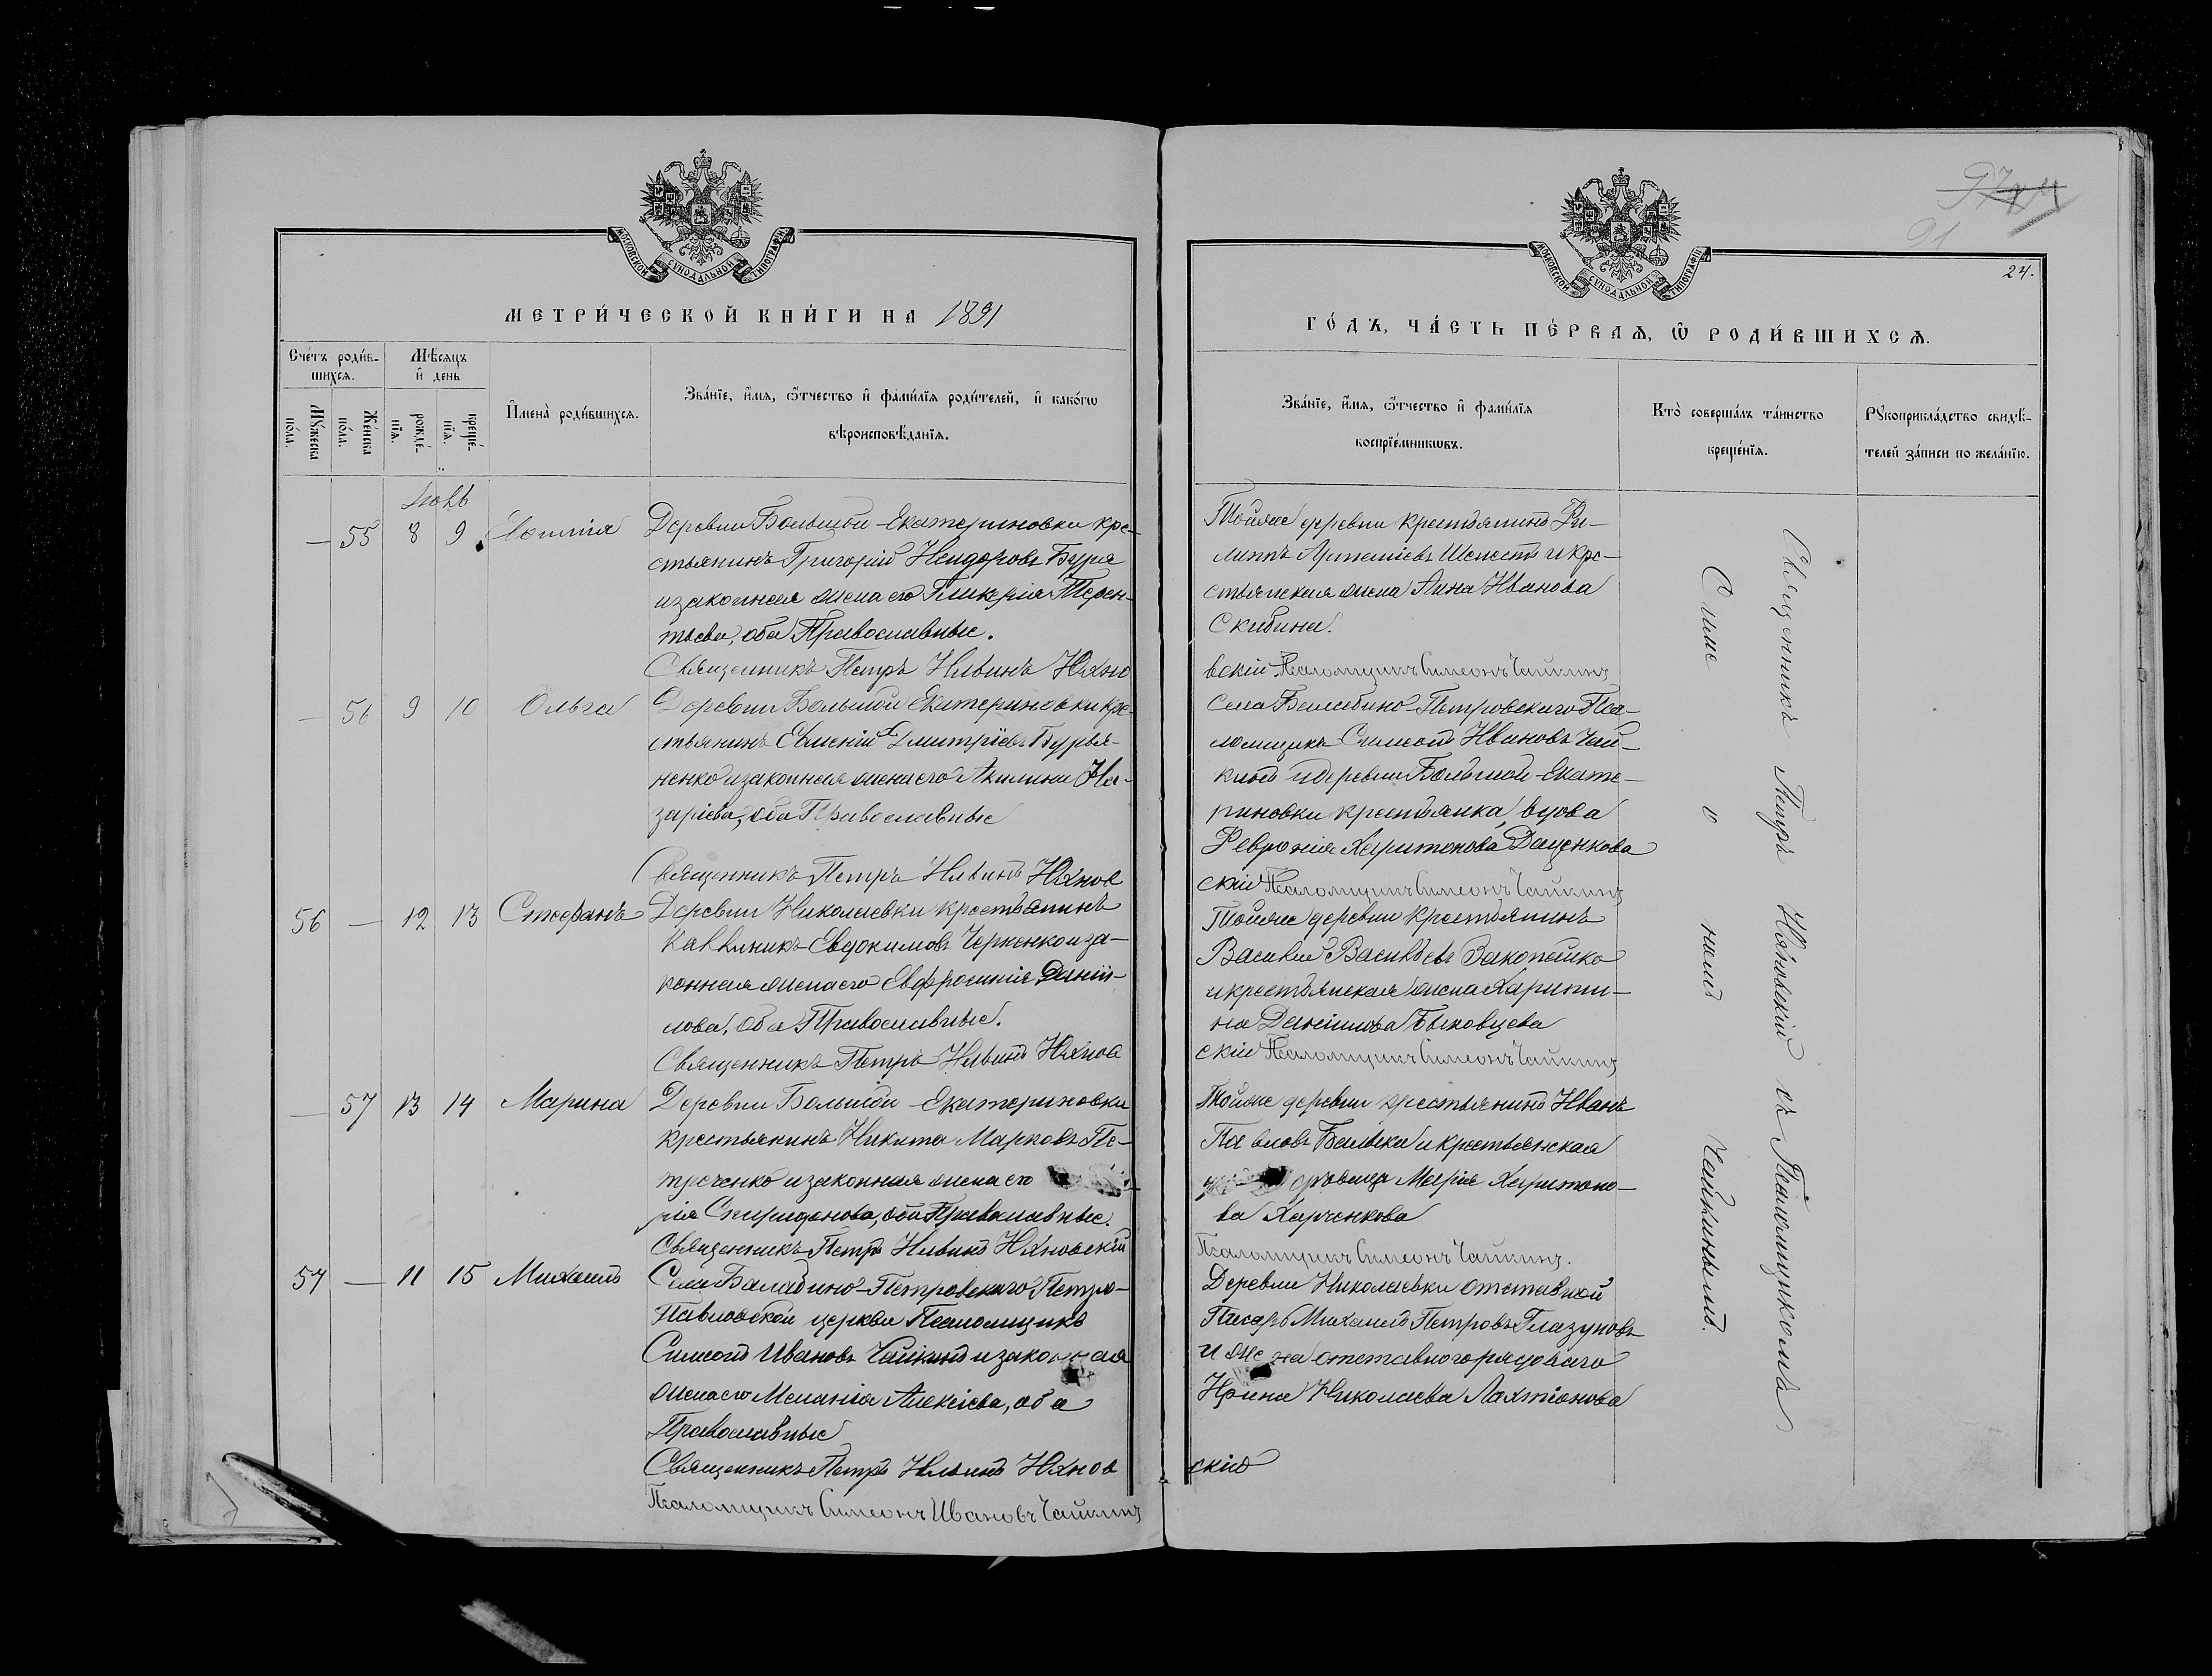 97
91
24.
МОСКОВСКОЙ СѴНОДАЛЬНОЙ ТИПОГРАФІИ
МОСКОВСКОЙ СѴНОДАЛЬНОЙ ТИПОГРАФІИ
МЕТРИ́ЧЕСКОЙ КНИ́ГИ НА 1891
ГО́ДЪ, ЧА́СТЬ ПЕ́РВАѦ, Ѡ РОДИ́ВШИХСѦ.
Сче́тъ роди́в-
шихся.
Мѣ́сяцъ
и҆ де́нь
Мꙋ́жеска
по́ла.
Же́нска
по́ла.
рожде́-
нїя.
креще́-
нїя.
И҆мена̀ роди́вшихся.
Зва́нїе, и҆́мя, ѻ҆́тчество и҆ фами́лїя роди́телей, и҆ како́гѡ
вѣроисповѣ́данїя.
Зва́нїе, и҆́мя, ѻ҆́тчество и҆ фами́лїя
воспрїе́мникѡвъ.
Кто̀ соверша́лъ та́инство
креще́нїя.
Рꙋкоприкла́дство свидѣ́-
телей за́писи по жела́нїю.
— 55 8 9
Деревни Большой-Екатериновки кре-
стьянинъ Григорій Исидоровъ Буря
и законная жена его Гликерія Терен-
тьева, оба Православные.
Священникъ Петръ Ильинъ Юхно
Тойже деревни крестьянинъ Фи-
липпъ Артеміевъ Шелестъ и кре-
стьянская жена Анна Иванова
Скибина.
вскій Псаломщикъ Симеонъ Чайкинъ
— 56 9 10 Ольга
Деревни Большой Екатериновки кре-
стьянинъ Евменій Дмитріевъ Бурья-
ненко и законная жена его Акилина На-
заріева, оба Православные
Священникъ Петръ Ильинъ Юхнов
Села Балабино-Петровскаго Пса-
ломщикъ Симеонъ Ивановъ Чай-
кинъ и деревни Большой-Екате-
риновки крестьянка, вдова
Февронія Харитонова Даценкова
скій Псаломщикъ Симеонъ Чайкинъ
56 — 12 13 Стефанъ
Деревни Николаевки крестьянинъ
Каллиникъ Евдокимовъ Черненко и за-
конная жена его Евфросинія Даніи-
лова, оба Православные.
Священникъ Петръ Ильинъ Юхнов
Тойже деревни крестьянинъ
Василій Васильевъ Закопайко
и крестьянская жена Харити-
на Даніилова Быковцева
скій Псаломщикъ Симеонъ Чайкинъ
— 57 13 14 Марина
Деревни Большой-Екатериновки
крестьянинъ Никита Марковъ Пе-
треченко и законная жена его
рія Спиридонова, оба Православные.
Священникъ Петръ Ильинъ Юхновскій
Тойже деревни крестьянинъ Иванъ
Павловъ Балыка и крестьянская
Марія Харитоно-
ва Харченкова
Псаломщикъ Симеонъ Чайкинъ.
57 — 11 15 Михаилъ
Села Балабино-Петровскаго Петро-
Павловской церкви Псаломщикъ
Симеонъ Ивановъ Чайкинъ и законная
жена его Меланія Алексіева, оба
Православные
Священникъ Петръ Ильинъ Юхнов
Псаломщикъ Симеонъ Ивановъ Чайкинъ
Деревни Николаевки отставной
Писарь Михаилъ Петровъ Глазуновъ
и жена отставного рядоваго
Ирина Николаева Лахтіонова
скій
Священникъ Петръ Юхновскій съ Псаломщикомъ
Симеономъ Чайкинымъ.